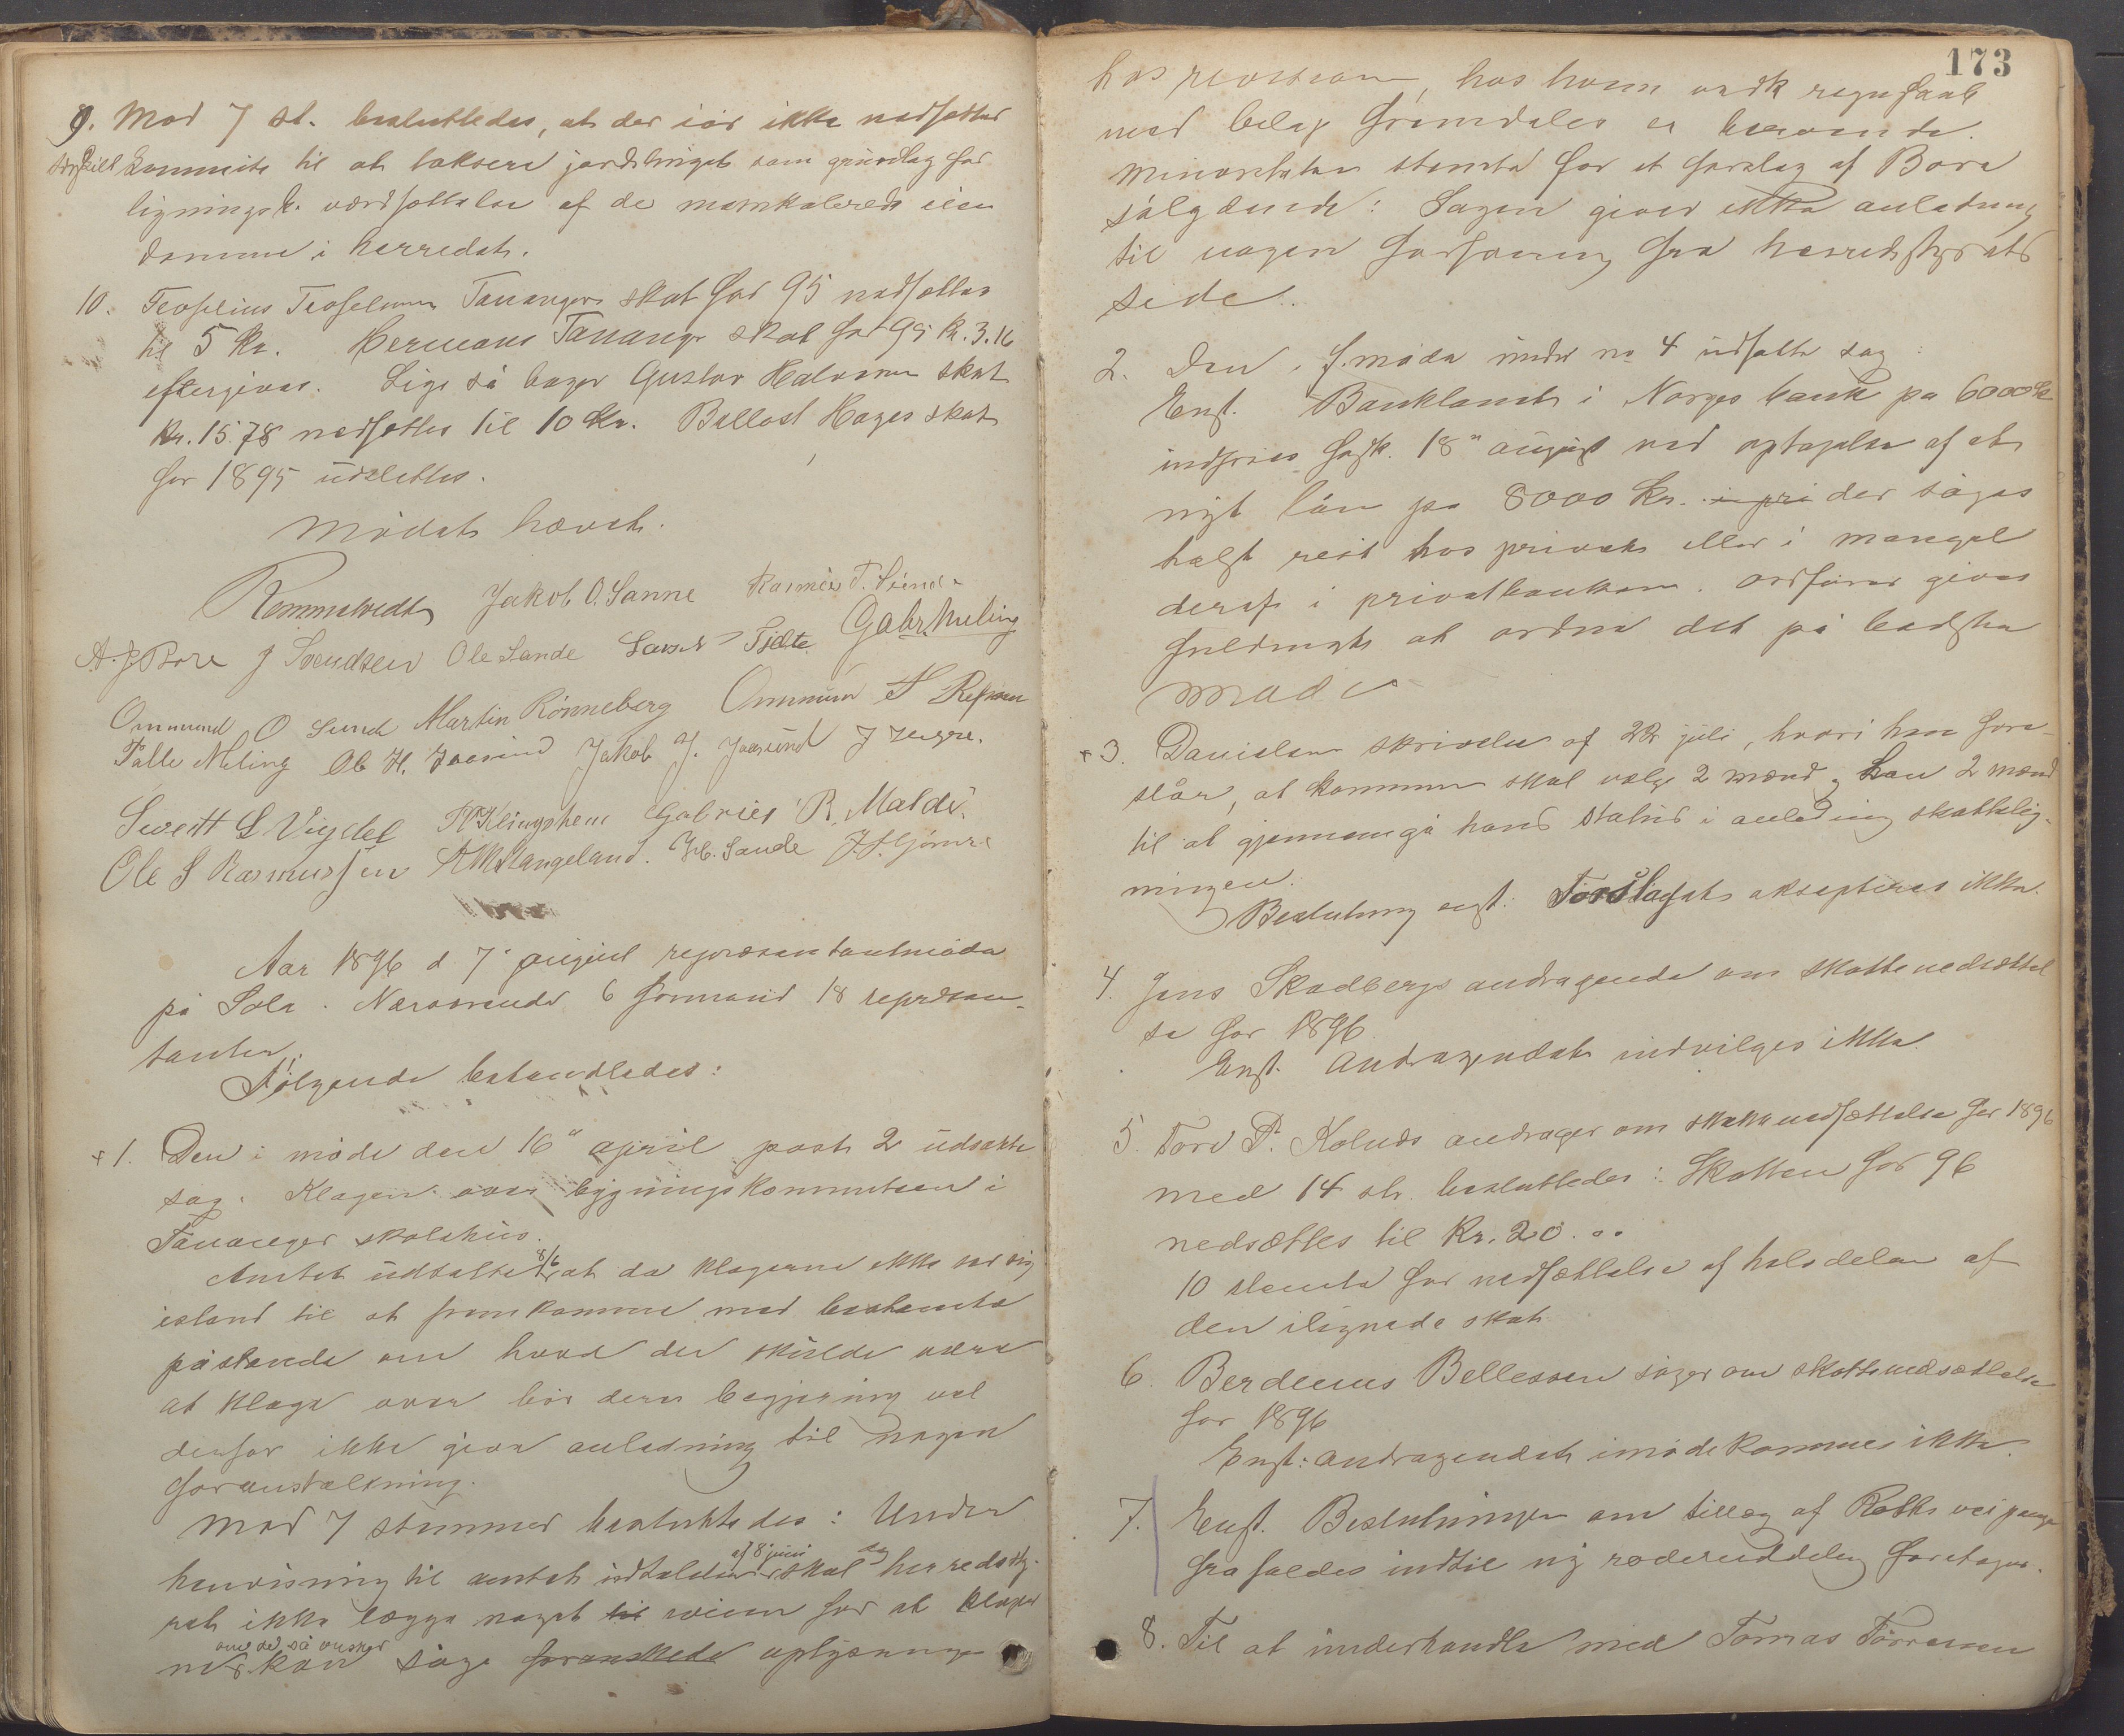 9. Mod 7 st. besluttedes, at der iår ikke nedsættes
særskilt komite til at taksere jord som grundlag for
ligningsk. værdsættelse af de matrikulerede eien
domme i herredet.
10. Teofilius Teofilussen Tanangers skat for 95 nedsættes
til 5 kr. Hermans Tananger skat for 95 kr. 3.16
eftergives. Lige så bager Gustav Halvorsen skat
kr. 15.78 nedsættes til 10 kr. Skat
for 1895 udslettes.
Mødet hævet.
Rommetvedt Jakob O. Sanne Rasmus T. Sunde
A. J. Bore J Svendsen Ole Sande Tjelte Gabr. Meling
Ommund O Sund Martin Rönneberg Ommund S Refsnes
Palle Meling Ole H. Jaasund Jakob J. Jaasund J
Sivert S Vigdel Klingsheim Gabriel R. Malde
Ole S Rasmussen A M Stangeland. Sande
Aar 1896 d 7' august repræsentantmøde
på Sola. Nærværende 6 formænd 18 repræsen-
tanter.
Følgende behandledes:
+ 1. Den i møde den 16" april post 2 udsatte
sag. Klagen over bygningskommiteen i
Tananger skolehus.
Amtet udtalte 8/6 at da klagerne ikke ser sig
istand til at fremkomme med bestemte
påstande om hvad der skulde være
at klage over bør deres begjæring vel
derfor ikke give anledning til nogen
foranstaltning.
Mod 7 stemmer besluttedes: Under
henvisning til amtets udtalelse af 8 juni skal herredsty-
ret ikke lægge noget til veien for at klager
ne om de så ønsker kan søge forønskede oplysninger
173
hos revisoren, hos hvem vedk regnskab
med belag Grimdales er beroende.
Minoriteten stemte for et forslag af Bore
sålydende: Sagen giver ikke anledning
til nogen forføining fra herredsstyrets
side.
2. Den i f. møde under no 4 udsatte sag
Enst. Banklånet i Norges bank på 6000 kr
indfries førstk. 18" august ved optagelse af et
nyt lån på 8000 kr. der søges
helst reist hos private eller i mangel
deraf i privatbanken. Ordfører gives
fuldmagt at ordne det på bedste
måde
+ 3. Danielsens skrivelse af 22 juli, hvori han fore-
slår, at kommunen skal vælge 2 mænd og han 2 mænd
til at gjennemgå hans status i anledning skattelig-
ningen.
Beslutning enst: Forslaget aksepteres ikke.
4. Jens Skadbergs andragende om skattenedsættel
se for 1896
Enst. Andragendet indvilges ikke
5. Tore P. Kolnes andrager om skattenedsættelse for 1896
med 14 st. besluttedes: Skatten for 96
nedsættes til Kr. 20.00
10 stemte for nedsættelse af halvdelen af
den ilignede skat
6. Berdinus Bellessen søger om skattenedsættelse
for 1896
Enst: andragendet imødekommes ikke.
7. Enst. Beslutningen om tillæg af Rotts veipenge
frafaldes indtil ny rodeinddeling foretages.
8. Til at underhandle med Tomas Törresen